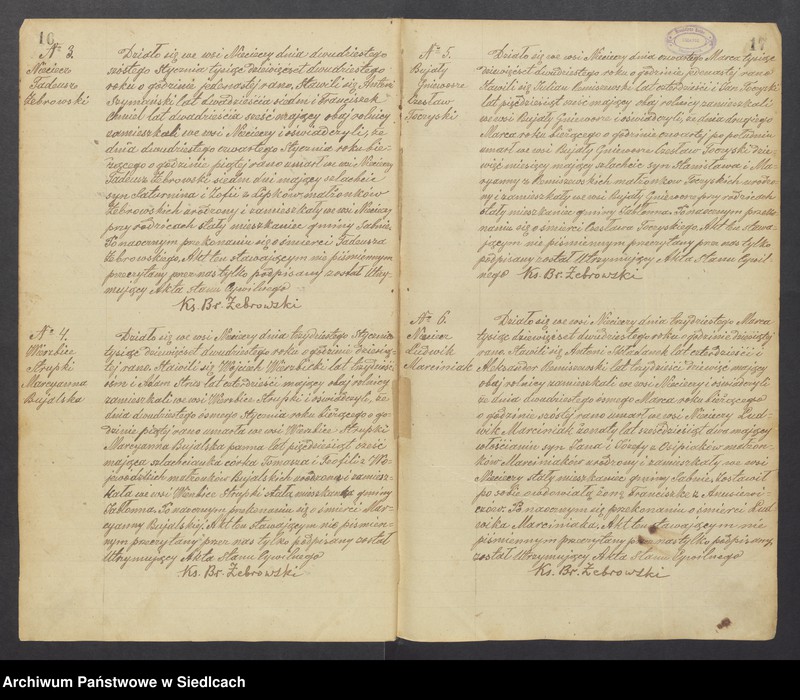 16
№ 3.
Nieciecz
Tadeusz
Żebrowski
Działo się we wsi Niecieczy dnia dwudziestego
szóstego Stycznia tysiąc dziewięćset dwudziestego
roku o godzinie jedenastej rano. Stawili się Antoni
Szymański lat dwadzieścia siedm i Franciszek
Chmiel lat dwadzieścia sześć mający obaj rolnicy
zamieszkali we wsi Niecieczy i oświadczyli, że
dnia dwudziestego czwartego Stycznia roku bie-
żącego o godzinie piątej rano zmarł we wsi Niecieczy
Tadeusz Żebrowski siedm dni mający szlachcic
syn Saturnina i Zofii z Lipków małżonków
Żebrowskich urodzony i zamieszkały we wsi Niecieczy
przy rodzicach stały mieszkaniec gminy Sabnie.
Po naocznym przekonaniu się o śmierci Tadeusza
Żebrowskiego, Akt ten stawającym nie piśmiennym
przeczytany przez nas tylko podpisany został Utrzy-
mujący Akta Stanu Cywilnego
Ks. Br. Żebrowski
№ 4.
Wierzbice
Strupki
Maryanna
Bujalska
Działo się we wsi Niecieczy dnia trzydziestego Stycznia
tysiąc dziewięćset dwudziestego roku o godzinie dziesią-
tej rano. Stawili się Wojciech Wierzbicki lat trzydzieści
osm i Adam Stos lat czterdzieści mający obaj rolnicy
zamieszkali we wsi Wierzbice Strupki i oświadczyli, że
dnia dwudziestego ósmego Stycznia roku bieżącego o go-
dzinie piątej rano umarła we wsi Wierzbice Strupki
Maryanna Bujalska panna lat pięćdziesiąt sześć
mająca szlachcianka córka Tomasza i Teofili z Wo-
małżonków Bujalskich urodzona i zamiesz-
kała we wsi Wierzbice Strupki stała mieszkanka gminy
Jabłonna. Po naocznym przekonaniu się o śmierci Mar-
yanny Bujalskiej, Akt ten stawającym nie piśmien-
nym przeczytany przez nas tylko podpisany został
Utrzymujący Akta Stanu Cywilnego
Ks. Br. Żebrowski
17
№ 5.
Bujały
Gniewosze
Czesław
Toczyski
Działo się we wsi Niecieczy dnia czwartego Marca tysiąc
dziewięćset dwudziestego roku o godzinie jedenastej rano
Stawili się Julian Remiszewski lat czterdzieści i Jan Toczyski
lat pięćdziesiąt sześć mający obaj rolnicy zamieszkali
we wsi Bujały Gniewosze i oświadczyli, że dnia drugiego
Marca roku bieżącego o godzinie czwartej po południu
umarł we wsi Bujały Gniewosze Czesław Toczyski dzie-
więć miesięcy mający szlachcic syn Stanisława i Ma-
ryanny z Remiszewskich małżonków Toczyskich urodzo-
ny i zamieszkały we wsi Bujały Gniewosze przy rodzicach
stały mieszkaniec gminy Jabłonna. Po naocznym przeko-
naniu się o śmierci Czesława Toczyskiego, Akt ten stawa-
jącym nie piśmiennym przeczytany przez nas tylko
podpisany został Utrzymujący Akta Stanu Cywil-
nego Ks. Br. Żebrowski
№ 6.
Nieciecz
Ludwik
Marciniak
Działo się we wsi Niecieczy dnia trzydziestego Marca
tysiąc dziewięćset dwudziestego roku o godzinie dziesiątej
rano. Stawili się Antoni Składanek lat czterdzieści i
Aleksander Remiszewski lat trzydzieści dziewięć mający
obaj rolnicy zamieszkali we wsi Niecieczy i oświadczyli
że dnia dwudziestego ósmego Marca roku bieżącego
o godzinie szóstej rano umarł we wsi Niecieczy Lud-
wik Marciniak żonaty lat sześćdziesiąt dwa mający
włościanin syn Jana i Józefy z Osipiaków małżon-
ków Marciniaków urodzony i zamieszkały we wsi
Niecieczy stały mieszkaniec gminy Sabnie. Zostawił
po sobie owdowiałą żonę Franciszkę z
Po naocznym przekonaniu się o śmierci Lud-
wika Marciniaka, Akt ten stawającym nie
piśmiennym przeczytany przez nas tylko podpisany
został Utrzymujący Akta Stanu Cywilnego
Ks. Br. Żebrowski
Archiwum Państwowe w Siedlcach